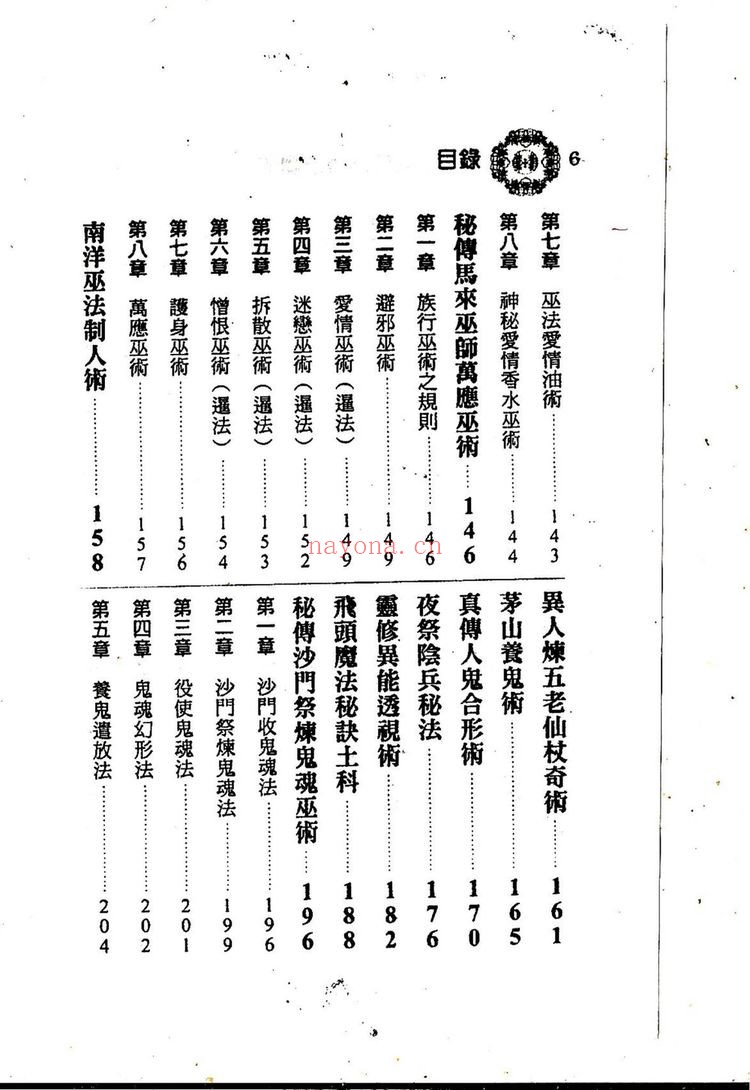 目錄
6
第七章 巫法愛情油術……143
第八章 神秘愛情香水巫術……144
秘傳馬來巫師萬應巫術……146
第一章 族行巫術之規則……146
第二章 避邪巫術……149
第三章 愛情巫術（暹法）……149
第四章 迷戀巫術（暹法）……152
第五章 拆散巫術（暹法）……153
第六章 憎恨巫術（暹法）……154
第七章 護身巫術……156
第八章 萬應巫術……157
南洋巫法制人術……158
異人煉五老仙杖奇術……161
茅山養鬼術……165
真傳人鬼合形術……170
夜祭陰兵秘法……176
靈修異能透視術……182
飛頭魔法秘訣土科……188
秘傳沙門祭煉鬼魂巫術……196
第一章 沙門收鬼魂法……196
第二章 沙門祭煉鬼魂法……199
第三章 役使鬼魂法……201
第四章 鬼魂幻形法……202
第五章 養鬼遣放法……204
nayona.cn